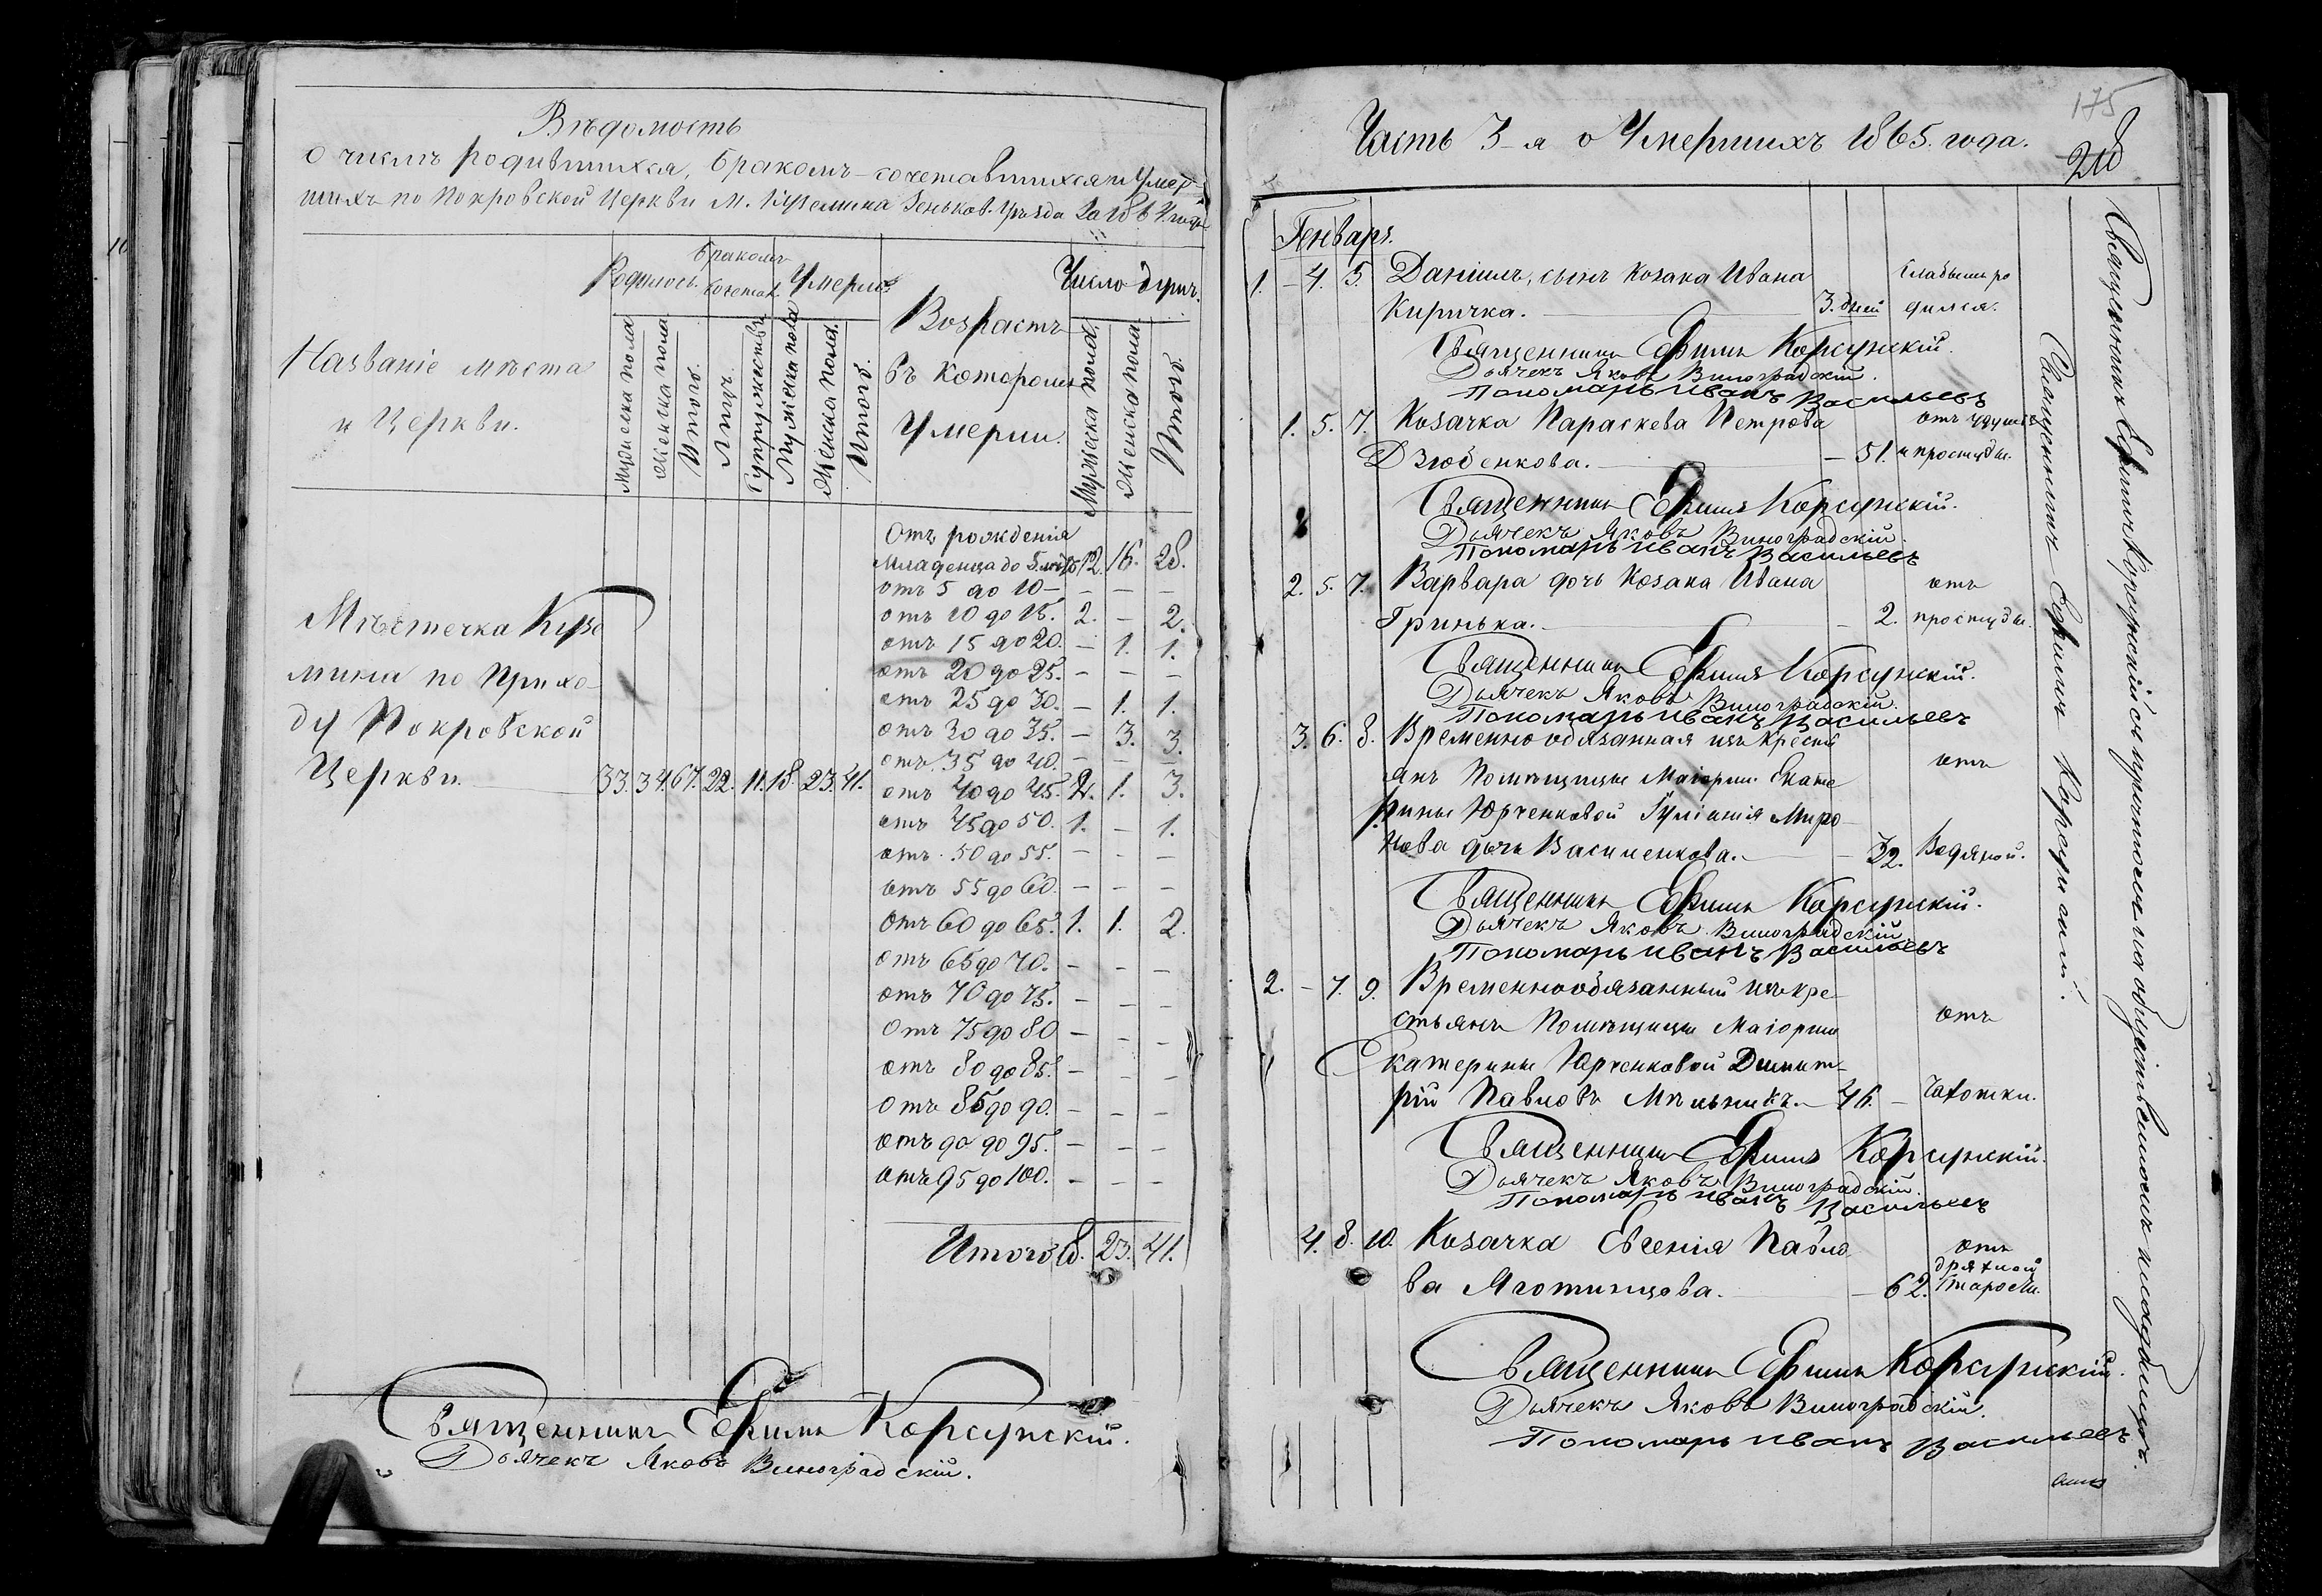 Вѣдомость
о числѣ родившихся, бракомъ-сочетавшихся и умер-
шихъ по Покровской Церкви М. Куземина Зеньков. уѣзда за 1864 годъ
Названіе мѣста
и Церкви.
Родилось.
Бракомъ
сочетал.
Умерло.
Мужеска пола
Женска пола
Итого.
Лицъ.
Супружествъ
Мужеска пола
Женска пола.
Итого.
Возрастъ
въ которомъ
Умерли.
Число душъ.
Мужеска пола.
Женска пола.
Итого.
Мѣстечка Кузе
мина по Прихо-
ду Покровской
Церкви. 33. 34. 67. 22. 11. 18. 23. 41.
Отъ рожденія
Младенца до 5 лѣтъ 12. 16. 28.
отъ 5 до 10 – – – –
отъ 10 до 15. 2. – 2.
отъ 15 до 20. – 1. 1.
отъ 20 до 25. – – –
отъ 25 до 30. – 1. 1.
отъ 30 до 35. – 3. 3.
отъ 35 до 40. – – –
отъ 40 до 45. 2. 1. 3.
отъ 45 до 50. 1. – 1.
отъ 50 до 55. – – –
отъ 55 до 60. – – –
отъ 60 до 65. 1. 1. 2.
отъ 65 до 70. – – –
отъ 70 до 75. – – –
отъ 75 до 80 – – –
отъ 80 до 85. – – –
отъ 85 до 90. – – –
отъ 90 до 95. – – –
отъ 95 до 100. – – –
Итого 18. 23. 41.
Священникъ Ефимъ Корсунскій.
Дьячекъ Яковъ Виноградскій.
175
Часть 3-я о Умершихъ 1865. года.
218
Генварь.
1. – 4. 5. Даніилъ, сынъ Козака Ивана слабымъ ро
Киричка. 3. дней дился.
Священникъ Ефимъ Корсунскій.
Дьячекъ Яковъ Виноградскій.
Пономарь Иванъ Васильевъ
1. 5. 7. Козачка Параскева Петрова отъ удушья
Дзюбенкова. – 51. и простуды.
Священникъ Ефимъ Корсунскій.
Дьячекъ Яковъ Виноградскій.
Пономарь Иванъ Васильевъ
2. 5. 7. Варвара дочь Козака Ивана отъ
Гринька. – 2. простуды.
Священникъ Ефимъ Корсунскій.
Дьячекъ Яковъ Виноградскій.
Пономарь Иванъ Васильевъ
3. 6. 8. Временнообязанная изъ крестьѣ
янъ Помѣщицы Маіорши Екате отъ
рины Юрченковой Гуліанія Миро
нова дочь Василенкова. – 32. Водяной.
Священникъ Ефимъ Корсунскій.
Дьячекъ Яковъ Виноградскій
Пономарь Иванъ Васильевъ
2. – 7. 9. Временнообязанный изъ кре-
стьянъ Помѣщицы Маіорши отъ
Екатерины Юрченковой Димит-
рій Павловъ Мельникъ. – 46. – Чахотки.
Священникъ Ефимъ Корсунскій.
Дьячекъ Яковъ Виноградскій.
Пономарь Иванъ Васильевъ
4. 8. 10. Козачка Евгенія Павло отъ
дряхлой
ва Яготинцова. – 62. старости.
Священникъ Ефимъ Корсунскій.
Дьячекъ Яковъ Виноградскій.
Пономарь Иванъ Васильевъ
Священникъ Ефимъ Корсунскій.
Священникъ Ефимъ Корсунскій съ причтомъ на общественномъ кладбищѣ.